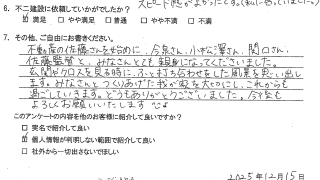 スピード感がよかったです。(私に合っていました)
6. 不二建設に依頼していかがでしたか?
☑ 満足 □ やや満足 □ 普通 □ やや不満 □ 不満
7. その他、ご自由にお書きください。
不動産の佐橋さんを始めに、今泉さん、小松澤さん、関口さん、
佐藤監督と、みなさんとても親身になってくださいました。
玄関やクロスを見る時に、ふと打ち合わせをした風景を思い出し
ます。みなさんとつくりあげた我が家を大切にし、これからも
過ごしていきます。どうもありがとうございました。今後も
よろしくお願いいたします
このアンケートの内容を他のお客様に紹介して良いですか?
□ 実名で紹介して良い
☑ 個人情報が判明しない範囲で紹介して良い
□ 社外から一切出さないでほしい
2025年12月15日